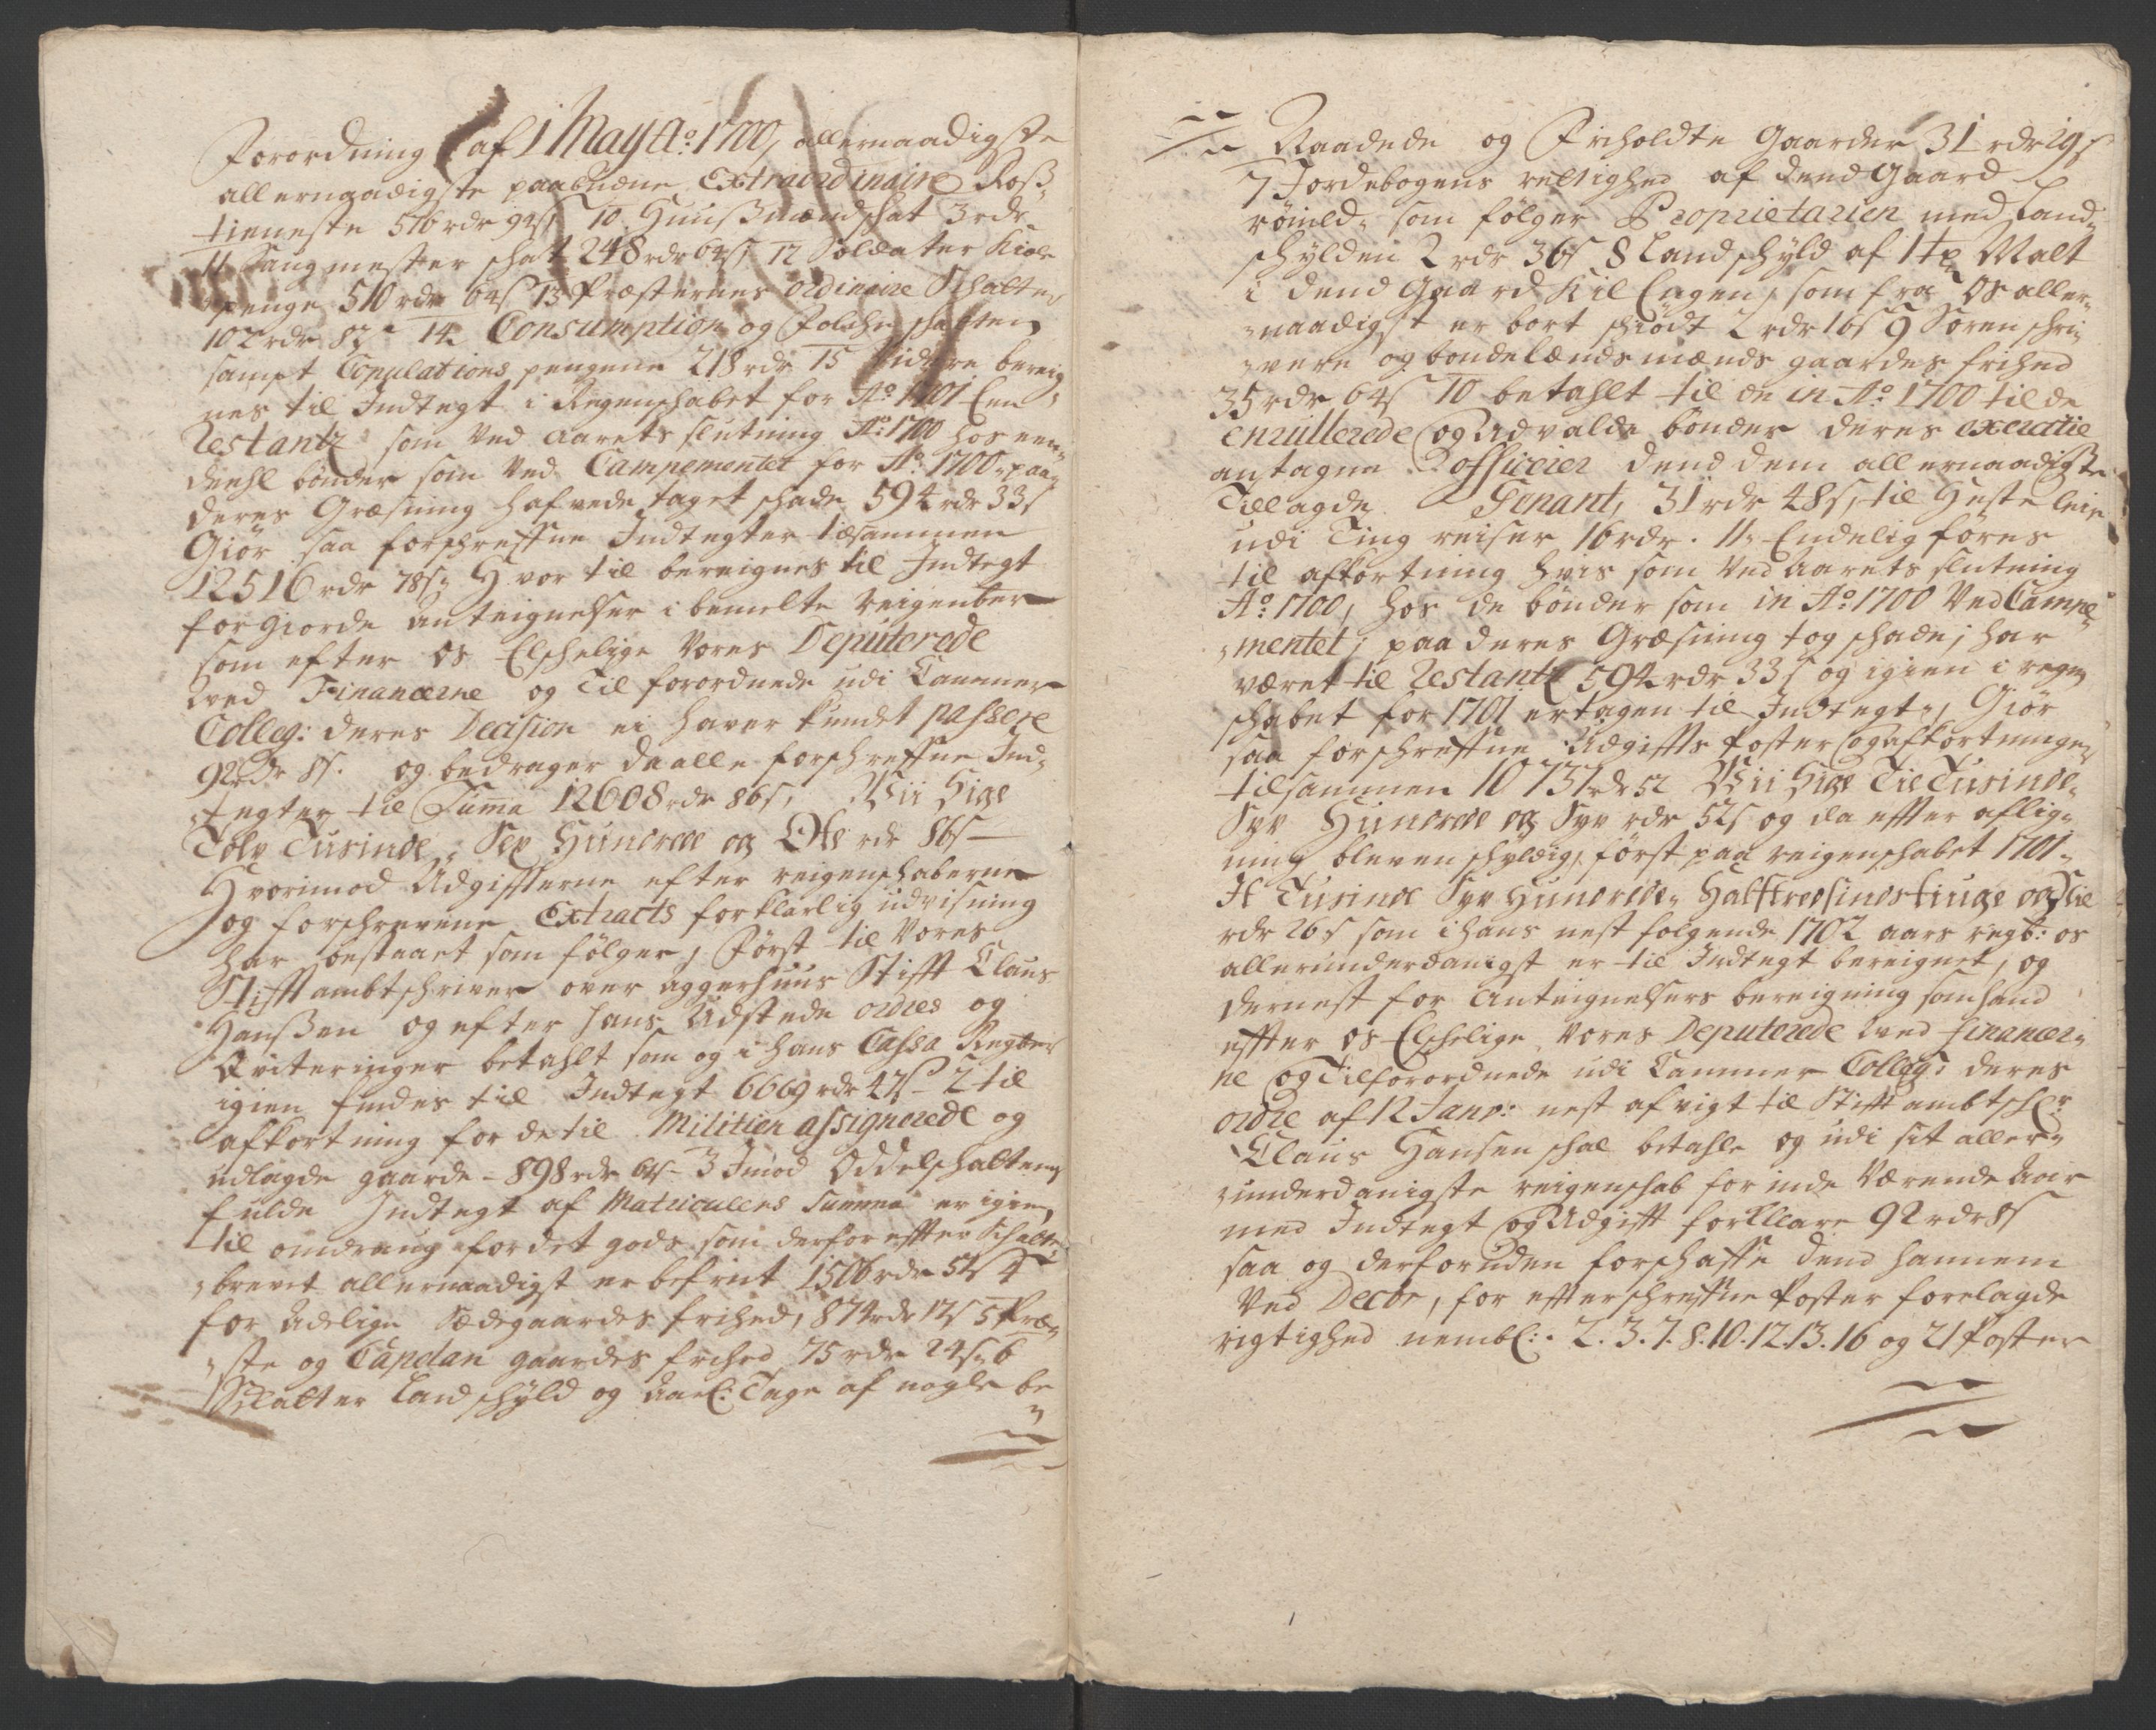 Forordning af 1 May Ao: 1700, allernaadigste
allernaadigste paabudne Extraordinaire Roß-
tieneste 516 rdr 94 s 10 Huußmænd schat 3 rdr
11 Saugmester schat 248 rdr 64 s 12 Soldater Kiole
penge 510 rdr 64 s 13 Præsternes ordinaire Schatter
102 rdr 8 14 Consumption og Folche schatten
sampt Copulations pengene 218 rdr 15 Videre bereig
nes til Indtegt i Regenschabet for Ao 1701 Een
Restantz som ved aarets slutning Ao: 1700 hos een
deehl bønder som ved Campementet for Ao 1700 paa
deres Græsning hafvede taget schade 594 rdr 33 s
Giør saa forschrefne Indtegter tilsammen
12516 rdr 78 s Hvor til bereignes til Indtegt
for giorde Anteignelser i bemelte Reigenber
som efter os Elschelige Vores Deputerede
ved Financerne og Til forordnede udi Cammer
Colleg: deres Decision ei haver kundet passere
92 rdr 8 s. og bedrager da alle forschrefne Ind-
tegter til Suma 12608 rdr 86 s, Wii Sige
Tolv Tusinde, Sex Hundrede og Otte rdr 86 s
Hvorimod Udgifterne efter reigenschaberne
og forschrevene Extracts forklarlig udvisning
har bestaaet som følger, Først til Vores
Stifftambtschriver over aggerhuus Stifft Claus
Hanßen og efter hans Udstede ordres og
Qviteringer betahlt som og i hans Cassa Regber
igien findes til Indtegt 6669 rdr 47 s 2 til
afkortning for de til Militien assignerede og
udlagde gaarde 898 rdr 64 s 3 Imod Oddelschattens
fulde Indtegt af Matriculens Summa er igien
til omdraug for det gods som derfor effter Schatte
brevet allernaadigst er befriet 1506 rdr 54 s 4
for Adelige Sædegaardes frihed, 874 rdr 12 s 5 Præ-
ste og Capelan gaardes frihed 75 rdr 24 s 6
Skatter Landschyld og Aarl: Tage af nogle be
Naadede og Friholdte Gaarder 31 rdr 19 s
7 Jordebogens rettighed af dend Gaard
som følger Proprietarien med Land-
schylden 2 rdr 36 s 8 Landschyld af 1 tp Malt
i dend Gaard Kil Engen, som fra os aller-
naadigst er bort schiødt 2 rdr 16 s 9 Soren schri-
vere og bondelænds mænds gaardes frihed
35 rdr 64 s 10 betahlt til de in Ao 1700 til de
enrullerede og Udvalde bønder deres exercitie
antagne officerer dend dem allernaadigste
Tillagde 31 rdr 48 s, til Heste leie
udi Ting reiser 16 rdr. 11 Endelig føres
til afkortning hvis som ved Aarets slutning
Ao: 1700, hos de bønder som in Ao: 1700 Ved Campe-
mentet; paa deres Græsning tog schade; har
været til Restantz 594 rdr 33 s og igien i regen
schabet for 1701 er tagen til Indtegt, Giør
saa forschrefne Udgiffts Poster og afkortninger
tilsammen 10737 rdr 52 Wii Sige Tie Tusinde
Syv Hundrede og Syv rdr 52 s og da effter aflig-
ning bleven schyldig, først paa reigenschabet 1701
It Tusinde Syv Hundrede Halftredsindstiuge og
rdr 26 s som i hans nest folgende 1702 aars regb: os
allerunderdanigst er til Indtegt bereignet, og
dernest for Anteignelsers bereigning som hand
effter os Elschelige Vores Deputerede ved financer-
ne og Tilforordnede udi Cammer Colleg: deres
ordre af 12 Janv: nest afvigt til Stifft ambtschr
Claus Hansen schal betahle og udi sit aller-
underdanigste reigenschab for inde Værende Aar
med Indtegt og Udgifft forklare 92 rdr 8 s
saa og derforuden forschaffe dend hannem
Ved Decbr, for effterschrefne Poster forelagde
rigtighed nembl: 2. 3. 7. 8. 10. 12. 13. 16 og 21 Poster